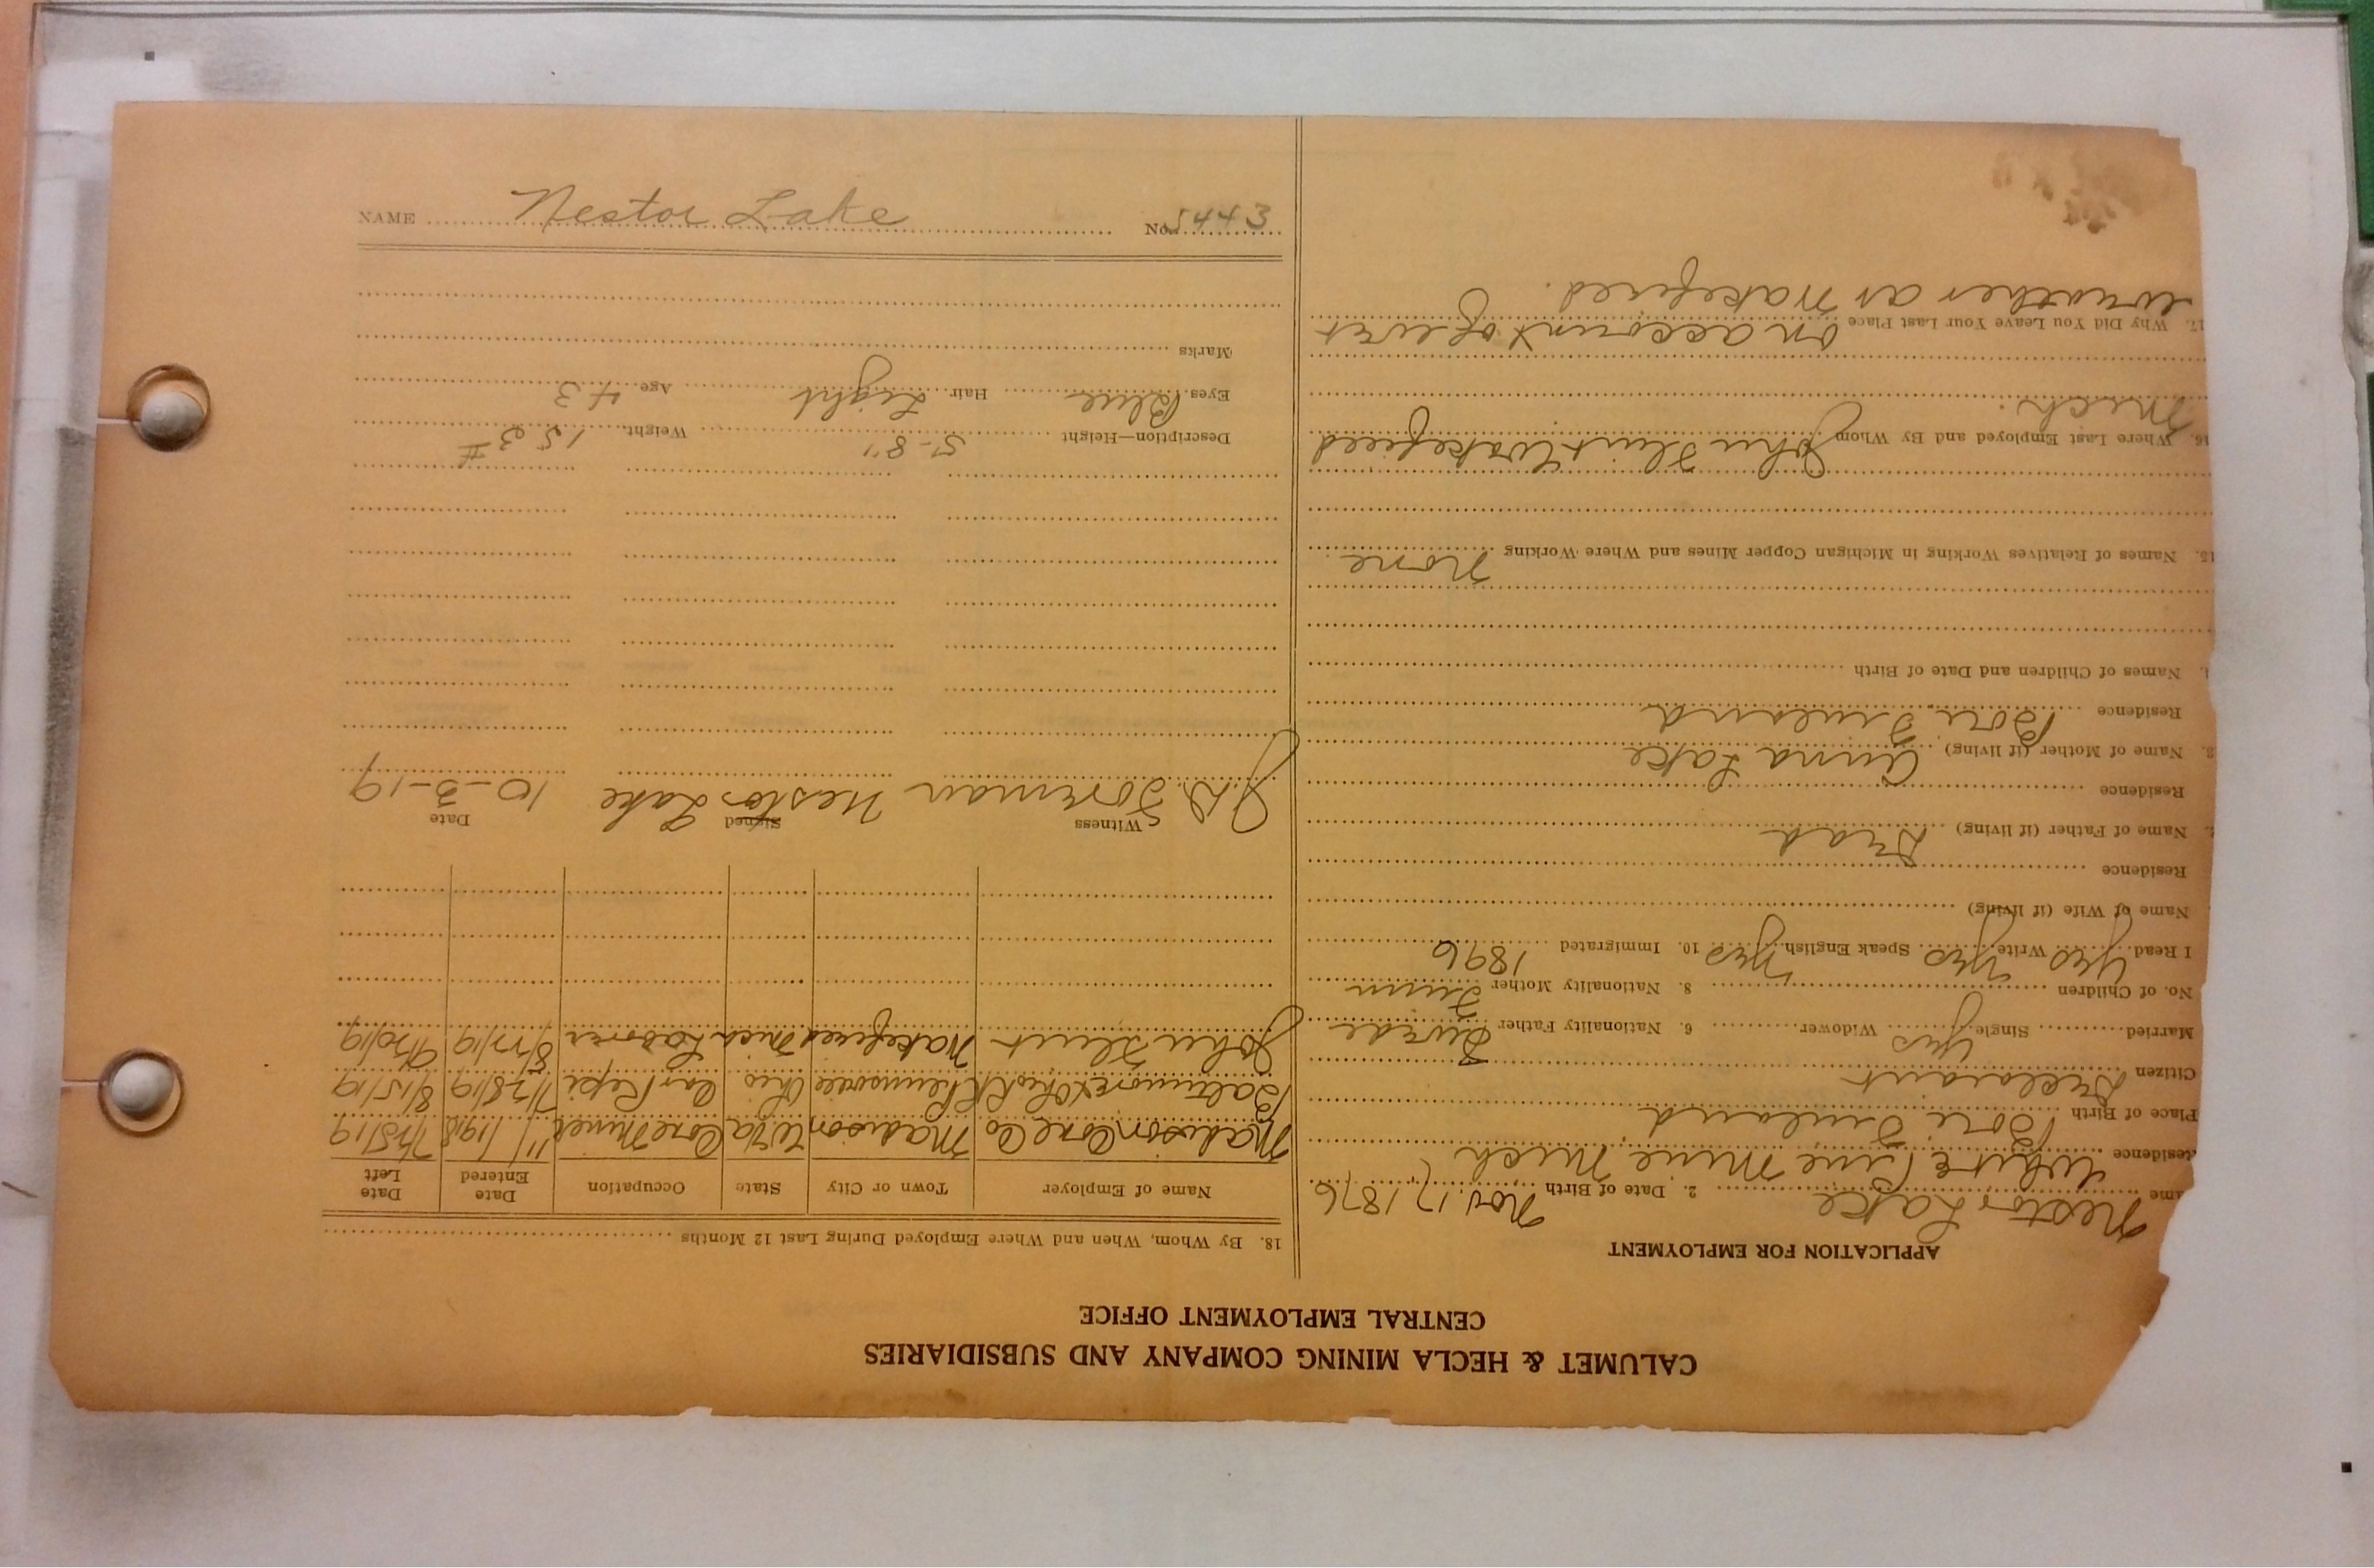 CALUMET & HECLA MINING COMPANY AND SUBSIDIARIES
CENTRAL EMPLOYMENT OFFICE
APPLICATION FOR EMPLOYMENT
ame Nestor Lake 2. Date of Birth Nov. 17, 1876
Residence White Pine Mine Mich
Place of Birth Finland
Citizen Declarant
Married Single yes Widower 6. Nationality Father Swede
No. of Children 8. Nationality Mother Finn
I Read yes Write yes Speak English yes 10. Immigrated 1896
Name of Wife (if living)
Residence
Name of Father (if living) Dead
Residence
Name of Mother (if living) Anna Lake
Residence Finland
Names of Children and Date of Birth
15. Names of Relatives Working in Michigan Copper Mines and Where Working None
16. Where Last Employed and By Whom John Flint Wakefield
Mich.
17. Why Did You Leave Your Last Place on account of wet
weather at Wakefield.
18. By Whom, When and Where Employed During Last 12 Months
Name of Employer Town or City State Occupation Date Entered Date Left
Madison Coal Co Madison W.Va Coal Miner 11/1918 7/15/19
Baltimore & Ohio RR Ohio Car Repr 7/28/19 8/15/19
John Flint Wakefield Mich Laborer 8/27/19 9/30/19
Witness Signed Date
Forman Nestor Lake 10-3-19
Description—Height 5-8" Weight 153 #
Eyes Blue Hair Light Age 43
Marks
NAME Nestor Lake No. 5443